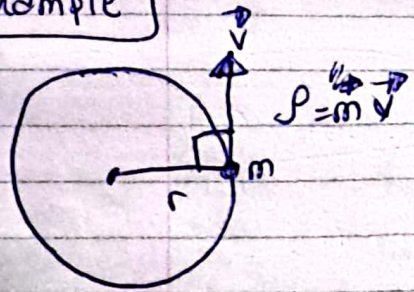 v⃗
ρ = m v⃗
m
r